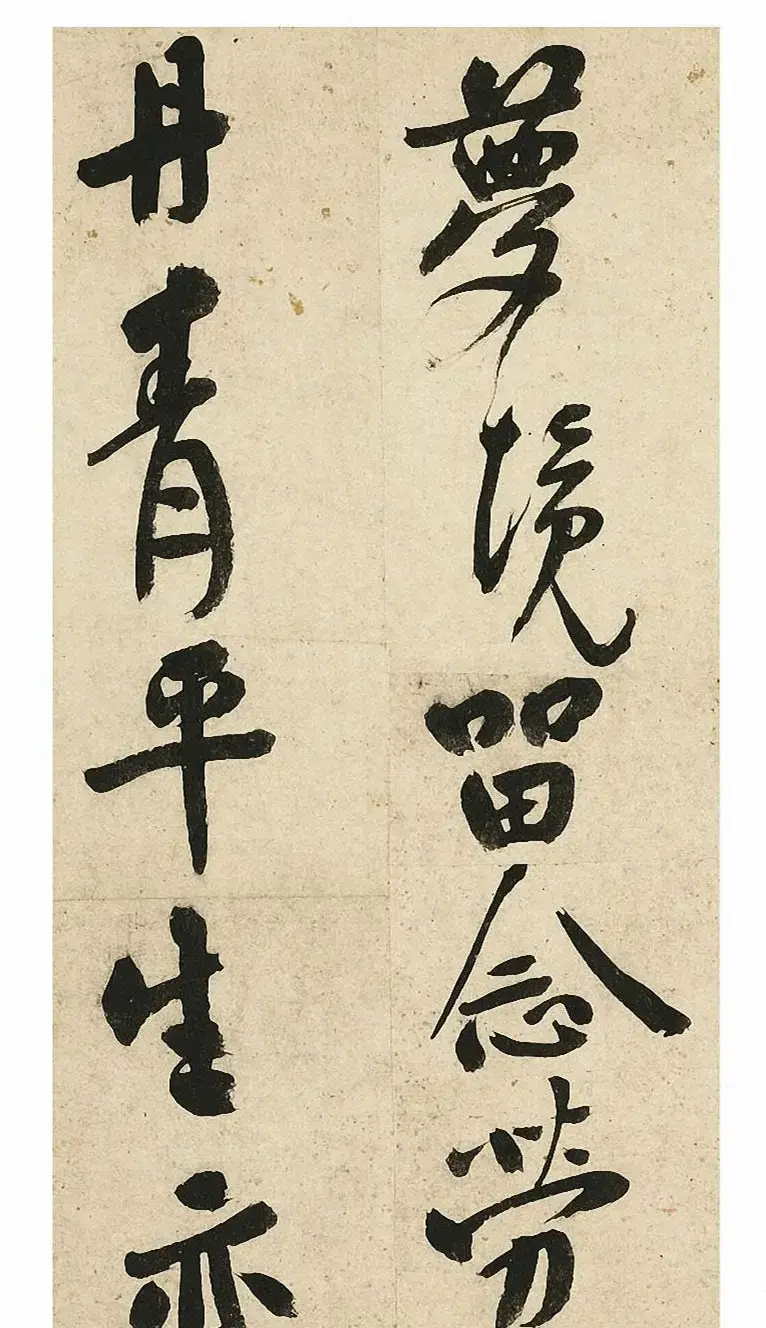 夢境留念勞
丹青平生亦